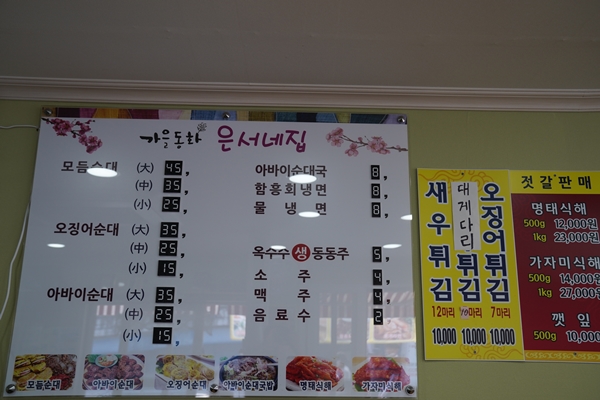 가을동화 은서네집
모듬순대 (大) 45,
(中) 35,
(小) 25,
오징어순대 (大) 35,
(中) 25,
(小) 15,
아바이순대 (大) 35,
(中) 25,
(小) 15,
아바이순대국 8,
함흥회냉면 8,
물냉면 8,
옥수수 生 동동주 5,
소주 4,
맥주 4,
음료수 2,
모듬순대
아바이순대
오징어순대
아바이순대국밥
명태식해
가자미식해
새우튀김
12마리
10,000
대게다리튀김
10마리
10,000
오징어튀김
7마리
10,000
젓갈판매
명태식해
500g 12,000원
1kg 23,000원
가자미식해
500g 14,000
1kg 27,000
깻잎
500g 10,000